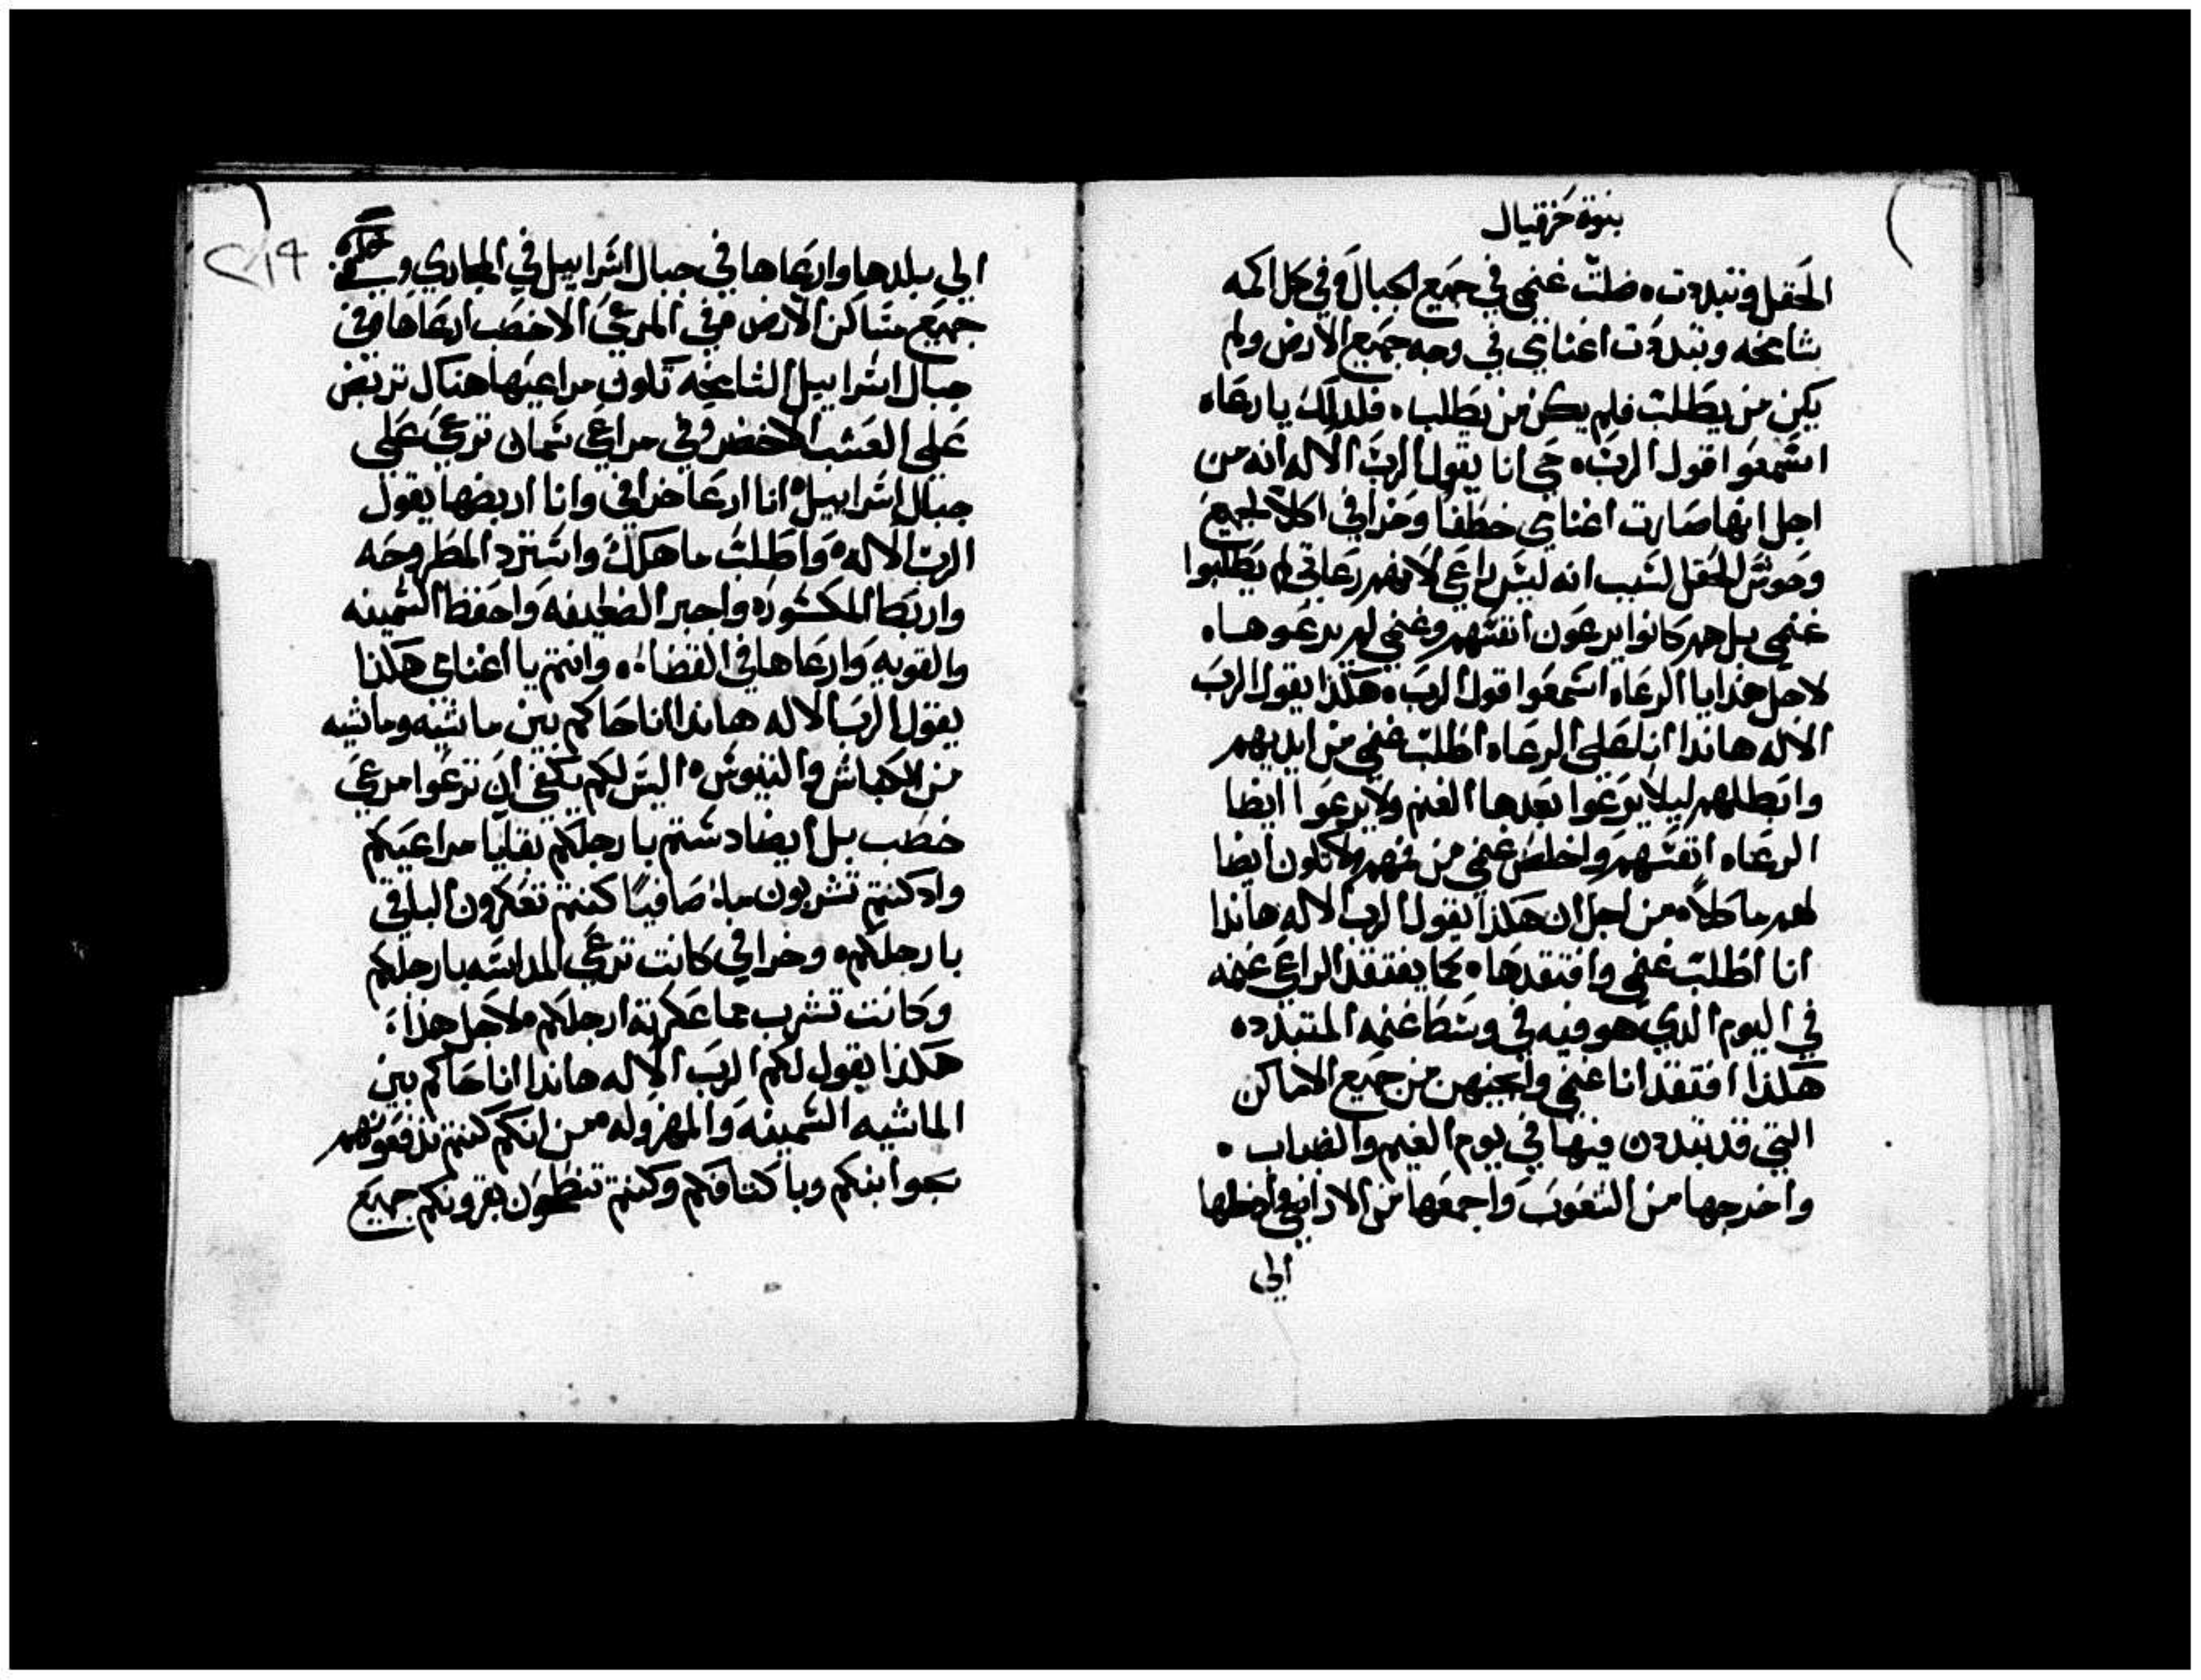 نبوة حزقيال
الحقل وتبددت. ضلت غنمي في جميع الجبال وفي كل اكمه
شامخه وتبددت اغنامي في وجه جميع الارض ولم
يكن من يطلب فلم يكن من يطلب. فلدلك يا رعاه
اسمعوا قول الرب. حي انا يقول الرب الاله انه من
اجل انها صارت اغنامي خطفا وخرافي اكلا لجميع
وحوش الحقل لسبب انه ليس راعي لانهم رعاتي لم يطلبوا
غنمي بل هم كانوا يرعون انفسهم وغنمي لم يرعوها.
لاجل هذا يا الرعاه اسمعوا قول الرب. هكذا يقول الرب
الاله هاندا انا على الرعاه اطلب غنمي من ايديهم
وابطلهم ليلا يرعوا بعدها الغنم ولا يرعوا ايضا
الرعاه انفسهم واخلص غنمي من فمهم ولا تكون ايضا
لهم ماكلا. من اجل ان هكذا يقول الرب الاله هاندا
انا اطلب غنمي وافتقدها. كما يفتقد الراعي غنمه
في اليوم الدي هو فيه في وسط غنمه المتبدده
هكذا افتقد انا غنمي وانجيهن من جميع الاماكن
التي قد تبددن فيها في يوم الغيم والضباب.
واخرجها من الشعوب واجمعها من الاراضي وادخلها
الى
٢١٩
الى بلدها وارعاها في جبال اسراييل في المجاري وفي
جميع مساكن الارض وفي المرعى الاخصب ارعاها وفي
جبال اسراييل الشامخه تكون مراعيها هناك تربض
على العشب الاخضر وفي مراعي سمان ترعى على
جبال اسراييل. انا ارعا خرافي وانا اربضها يقول
الرب الاله. واطلب ما هلك واسترد المطروحه
واربط المكسوره واجبر الضعيفه واحفظ السمينه
والقويه وارعاها في القضاء. وانتم يا اغنامي هكذا
يقول الرب الاله هاندا انا حاكم بين ماشيه وماشيه
من الكباش والتيوس. اليس لكم يكفي ان ترعوا مرعى
خصب بل ايضا دستم بارجلكم بقايا مراعيكم
واد كنتم تشربون ماء صافيا كنتم تعكرون الباقي
بارجلكم. وخرافي كانت ترعى المداسه بارجلكم
وكانت تشرب مما عكرته ارجلكم. لاجل هذا
هكذا يقول لكم الرب الاله هاندا انا حاكم بين
الماشيه السمينه والمهزوله. من انكم كنتم تدفعونهم
بجوانبكم وباكتافكم وكنتم تنطحون بقرونكم جميع